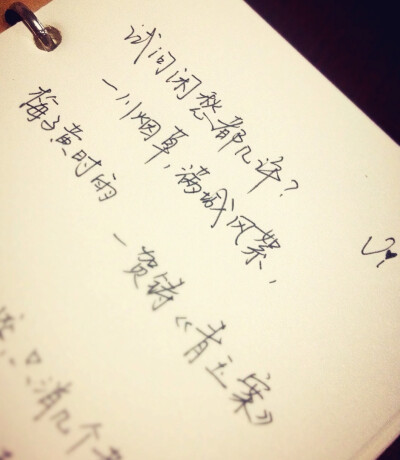 试问闲愁都几许？
一川烟草，满城风絮，
梅子黄时雨
—贺铸《青玉案》
Vi
只消几个